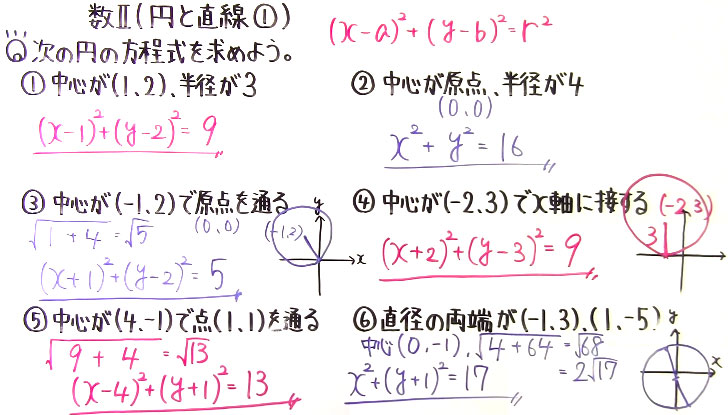 数Ⅱ(円と直線①)
(x-a)²+(y-b)²=r²
Q次の円の方程式を求めよう。
①中心が(1、2)、半径が3
(x-1)²+(y-2)²=9
②中心が原点、半径が4
(0、0)
x²+y²=16
③中心が(-1、2)で原点を通る
(0、0)
√1+4=√5
(x+1)²+(y-2)²=5
(-1、2)
y
x
④中心が(-2、3)でx軸に接する
(-2、3)
3
(x+2)²+(y-3)²=9
⑤中心が(4、-1)で点(1、1)を通る
√9+4=√13
(x-4)²+(y+1)²=13
⑥直径の両端が(-1、3)、(1、-5)
中心(0、-1)、√4+64=√68
=2√17
x²+(y+1)²=17
y
x